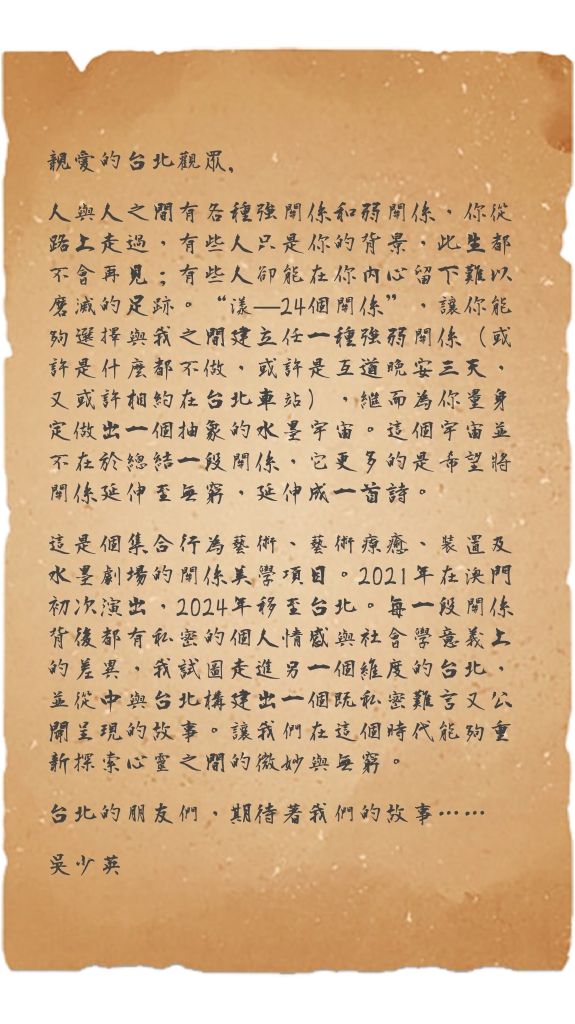 親愛的台北觀眾,
人與人之間有各種強關係和弱關係，你從
路上走過，有些人只是你的背景，此生都
不會再見；有些人卻能在你內心留下難以
磨滅的足跡。“漾—24個關係”，讓你能
夠選擇與我之間建立任一種強弱關係（或
許是什麼都不做，或許是互道晚安三天，
又或許相約在台北車站），繼而為你量身
定做出一個抽象的水墨宇宙。這個宇宙並
不在於總結一段關係，它更多的是希望將
關係延伸至無窮，延伸成一首詩。
這是個集合行為藝術、藝術療癒、裝置及
水墨劇場的關係美學項目。2021年在澳門
初次演出，2024年移至台北。每一段關係
背後都有私密的個人情感與社會學意義上
的差異，我試圖走進另一個維度的台北，
並從中與台北構建出一個既私密難言又公
開呈現的故事。讓我們在這個時代能夠重
新探索心靈之間的微妙與無窮。
台北的朋友們，期待著我們的故事……
吳少英